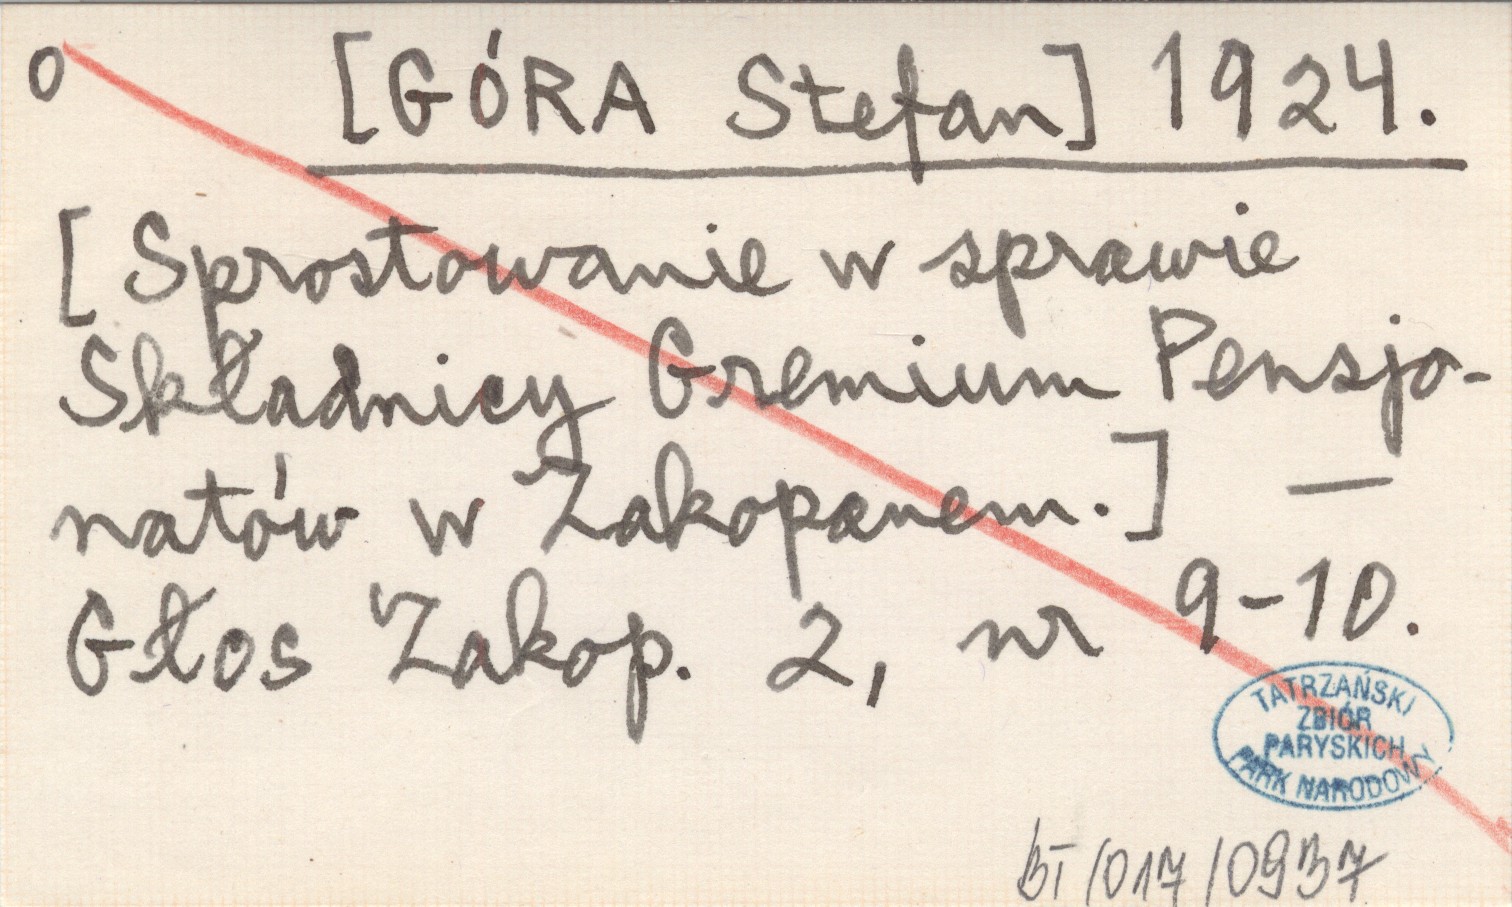 o [GÓRA Stefan] 1924.
[Sprostowanie w sprawie
Składnicy Gremium Pensjo-
natów w Zakopanem.] —
Głos Zakop. 2, nr 9-10.
TATRZAŃSKI
ZBIÓR
PARYSKICH
PARK NARODOWY
BT/017/0937